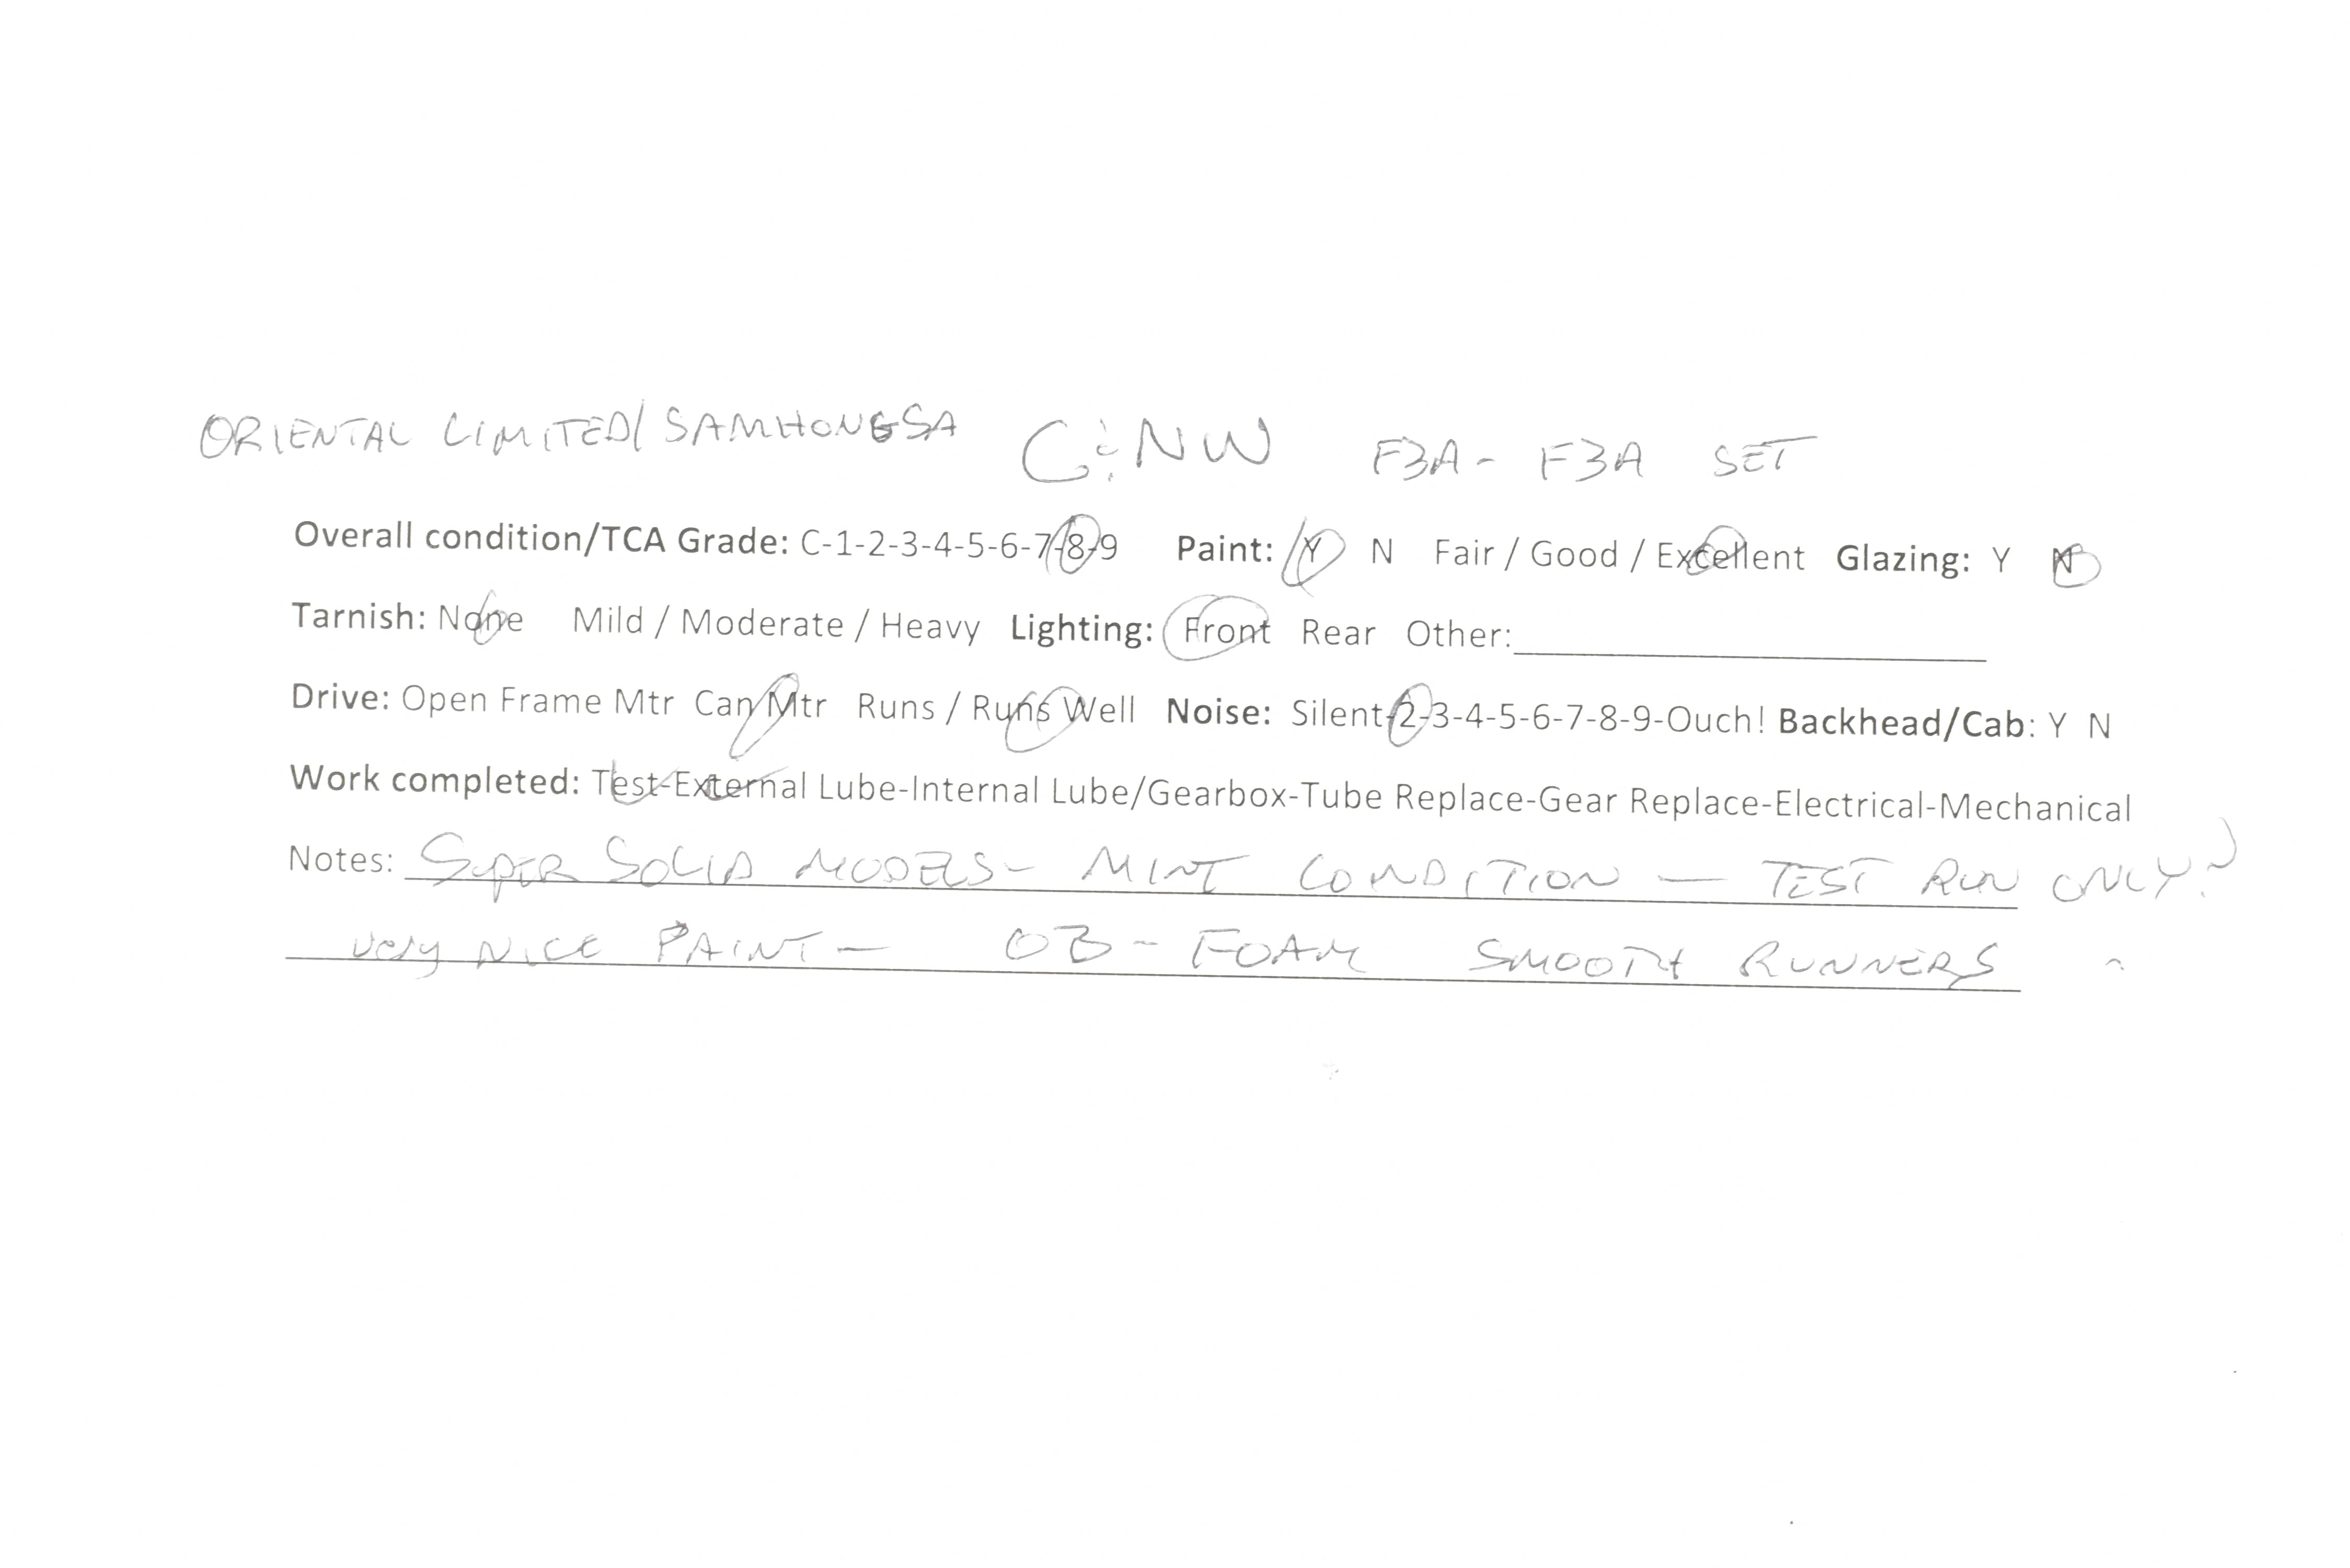 ORIENTAL LIMITED/SAMHONGSA C&NW F3A- F3A SET
Overall condition/TCA Grade: C-1-2-3-4-5-6-7-8-9 Paint: Y N Fair / Good / Excellent Glazing: Y N
Tarnish: None Mild / Moderate / Heavy Lighting: Front Rear Other:
Drive: Open Frame Mtr Can Mtr Runs / Runs Well Noise: Silent-2-3-4-5-6-7-8-9-Ouch! Backhead/Cab: Y N
Work completed: Test-External Lube-Internal Lube/Gearbox-Tube Replace-Gear Replace-Electrical-Mechanical
Notes: SUPER SOLID MODELS- MINT CONDITION - TEST RUN ONLY?
VERY NICE PAINT- OB- FOAM SMOOTH RUNNERS